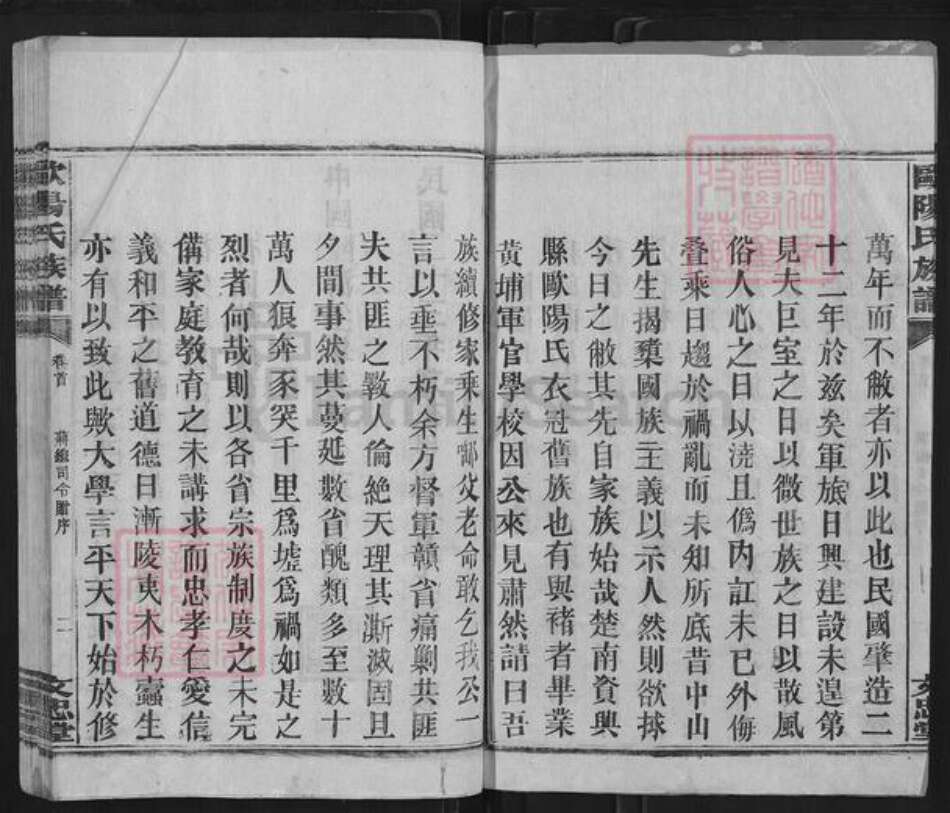 歐陽氏族譜
萬年而不敝者亦以此也民國肇造二
十二年於茲矣軍旅日興建設未遑第
見夫巨室之日以微世族之日以散風
俗人心之日以澆且僞內訌未已外侮
疊乘日趨於禍亂而未知所底昔中山
先生揭櫫國族主義以示人然則欲捄
今日之敝其先自家族始哉楚南資興
縣歐陽氏衣冠舊族也有與褚者畢業
黃埔軍官學校因公來見肅然請曰吾
文忠堂
族續修家乘生啣父老命敢乞我公一
言以垂不朽余方督軍贛省痛剿共匪
夫共匪之斁人倫絕天理其澌滅固旦
夕間事然其蔓延數省醜類多至數十
萬人狼奔豕突千里爲墟爲禍如是之
烈者何哉則以各省宗族制度之未完
備家庭教育之未講求而忠孝仁愛信
義和平之舊道德日漸陵夷木朽蠹生
亦有以致此歟大學言平天下始於修
歐陽氏族譜
卷首
蔣總司令贈序
二
文忠堂